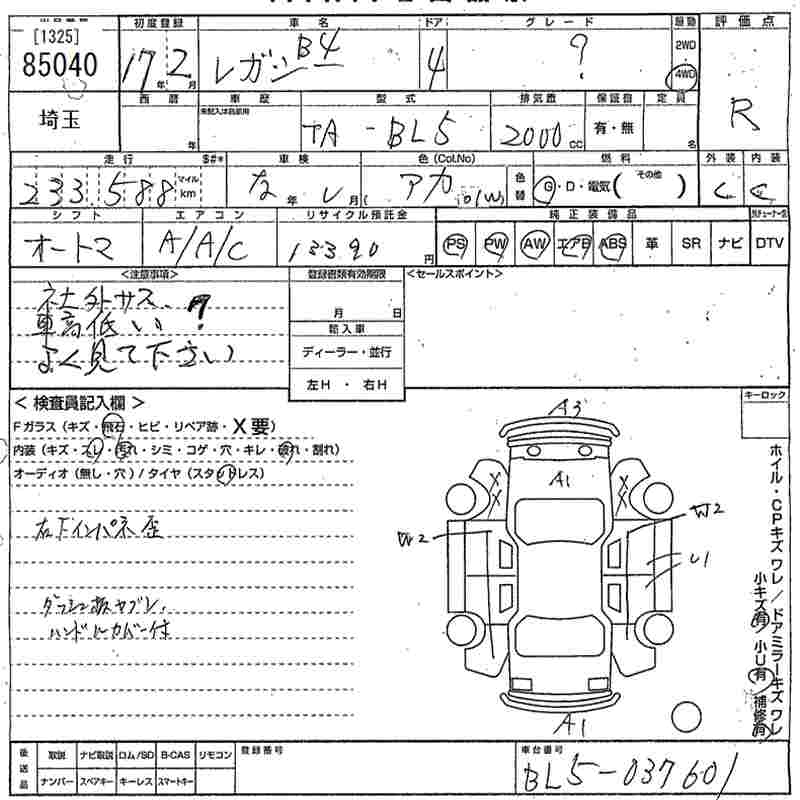 [1325]
85040
初度登録
17年 2月
車名
レガシ B4
ドア
4
グレード
?
駆動
2WD
4WD
評価点
R
埼玉
西暦
年
車歴
未記入は自家用
型式
TA-BL5
排気数
2000cc
保証書
有・無
定員
名
走行
$#*
233,588
マイル
km
車検
な 年 し 月
色(Col.No)
アカ
色替
燃料
G・D・電気(その他)
外装
C
内装
C
シフト
オートマ
エアコン
A/A/C
リサイクル預託金
13390円
純正装備品
PS PW AW エアB ABS 革 SR ナビ DTV
<注意事項>
社外サス、?
車高低い!
よく見て下さい
登録書類有効期限
月 日
輸入車
ディーラー・並行
左H・右H
<セールスポイント>
<検査員記入欄>
Fガラス(キズ・飛石・ヒビ・リペア跡・X要)
内装(キズ・スレ・汚れ・シミ・コゲ・穴・キレ・破れ・割れ)
オーディオ(無し・穴)/タイヤ(スタッドレス)
右下インパネ歪
ダッシュ板ヤブレ、
ハンドルカバー付
A3
A1
X X
X X
W2
W2
U1
A1
キーロック
ホイル・CPキズワレ/ドアミラーキズワレ
小キズ有 小U有 補修有
後送品
取説 ナビ取説 ロム/SD B-CAS リモコン
ナンバー スペアキー キーレス スマートキー
登録番号
車台番号
BL5-037601